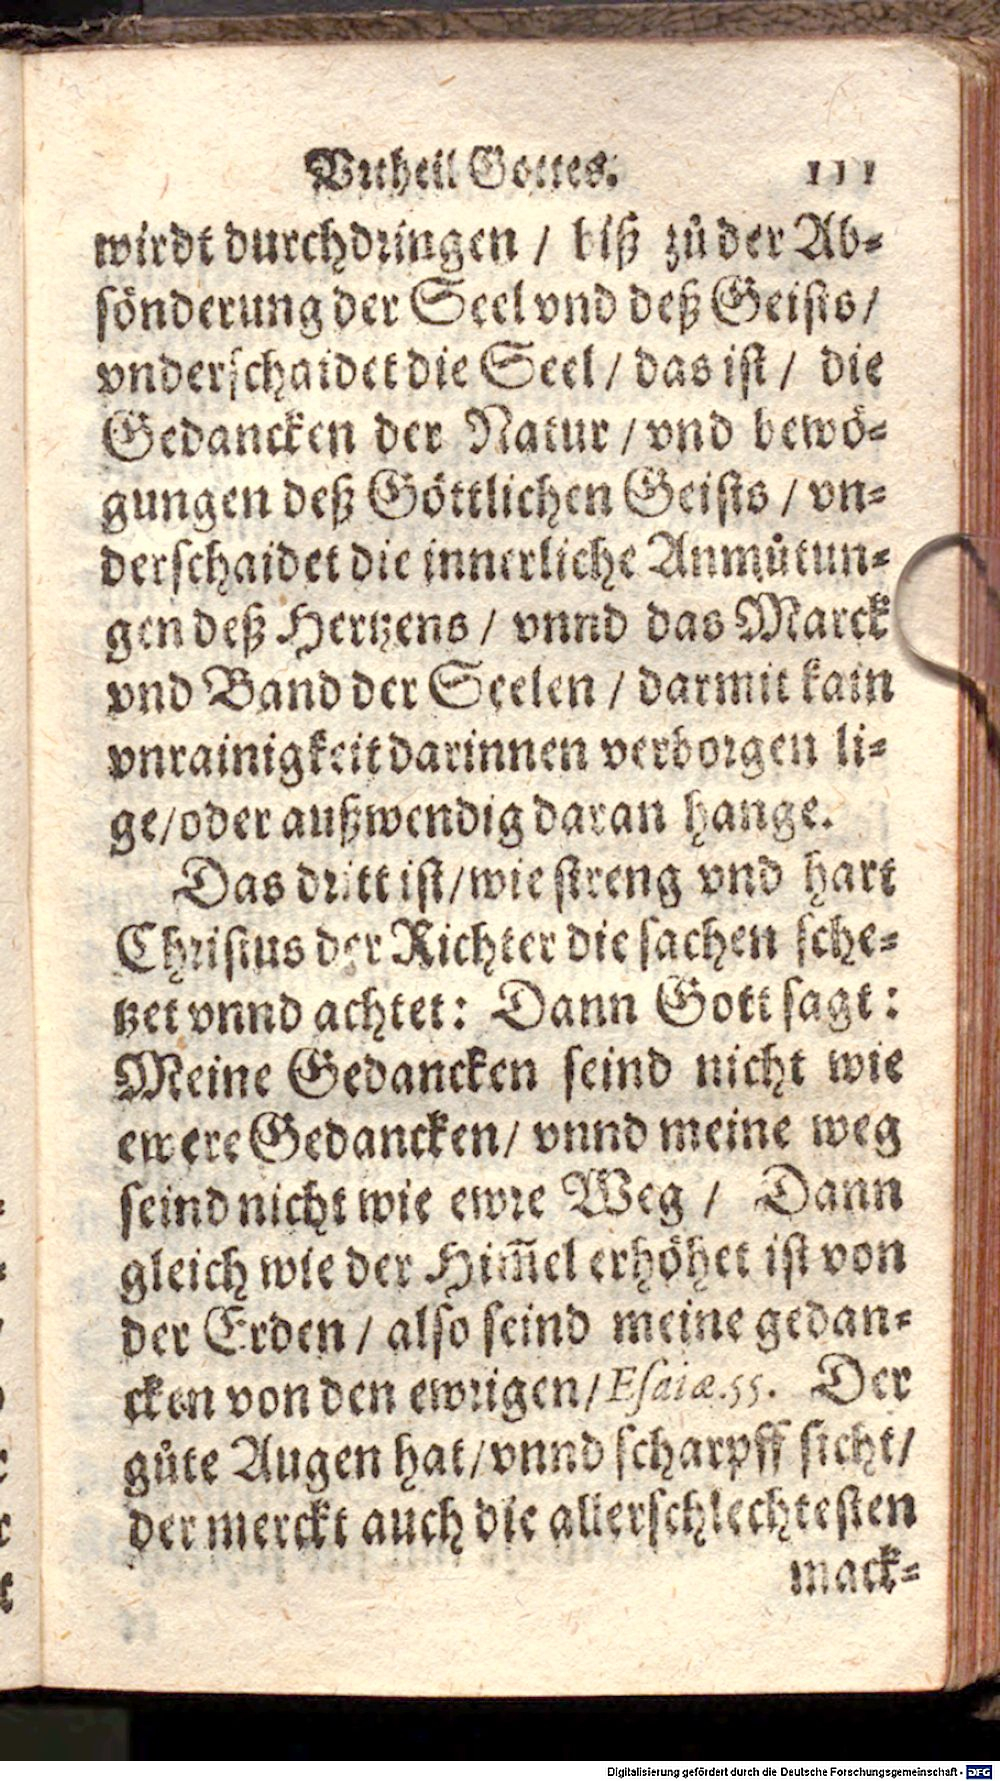 Vrtheil Gottes. 111
wirdt durchdringen / biß zů der Ab-
sönderung der Seel vnd deß Geists /
vnderschaidet die Seel / das ist / die
Gedancken der Natur / vnd bewö-
gungen deß Göttlichen Geists / vn-
derschaidet die innerliche Anmůtun-
gen deß Hertzens / vnnd das Marck
vnd Band der Seelen / darmit kain
vnrainigkeit darinnen verborgen li-
ge/oder außwendig daran hange.
Das dritt ist/wie streng vnd hart
Christus der Richter die sachen sche-
tzet vnnd achtet: Dann Gott sagt:
Meine Gedancken seind nicht wie
ewere Gedancken/ vnnd meine weg
seind nicht wie ewre Weg / Dann
gleich wie der Him̃el erhöhet ist von
der Erden / also seind meine gedan-
cken von den ewrigen/Esaiæ.55. Der
gůte Augen hat/vnnd scharpff sicht/
der merckt auch die allerschlechtesten
mack-
Digitalisierung gefördert durch die Deutsche Forschungsgemeinschaft - DFG